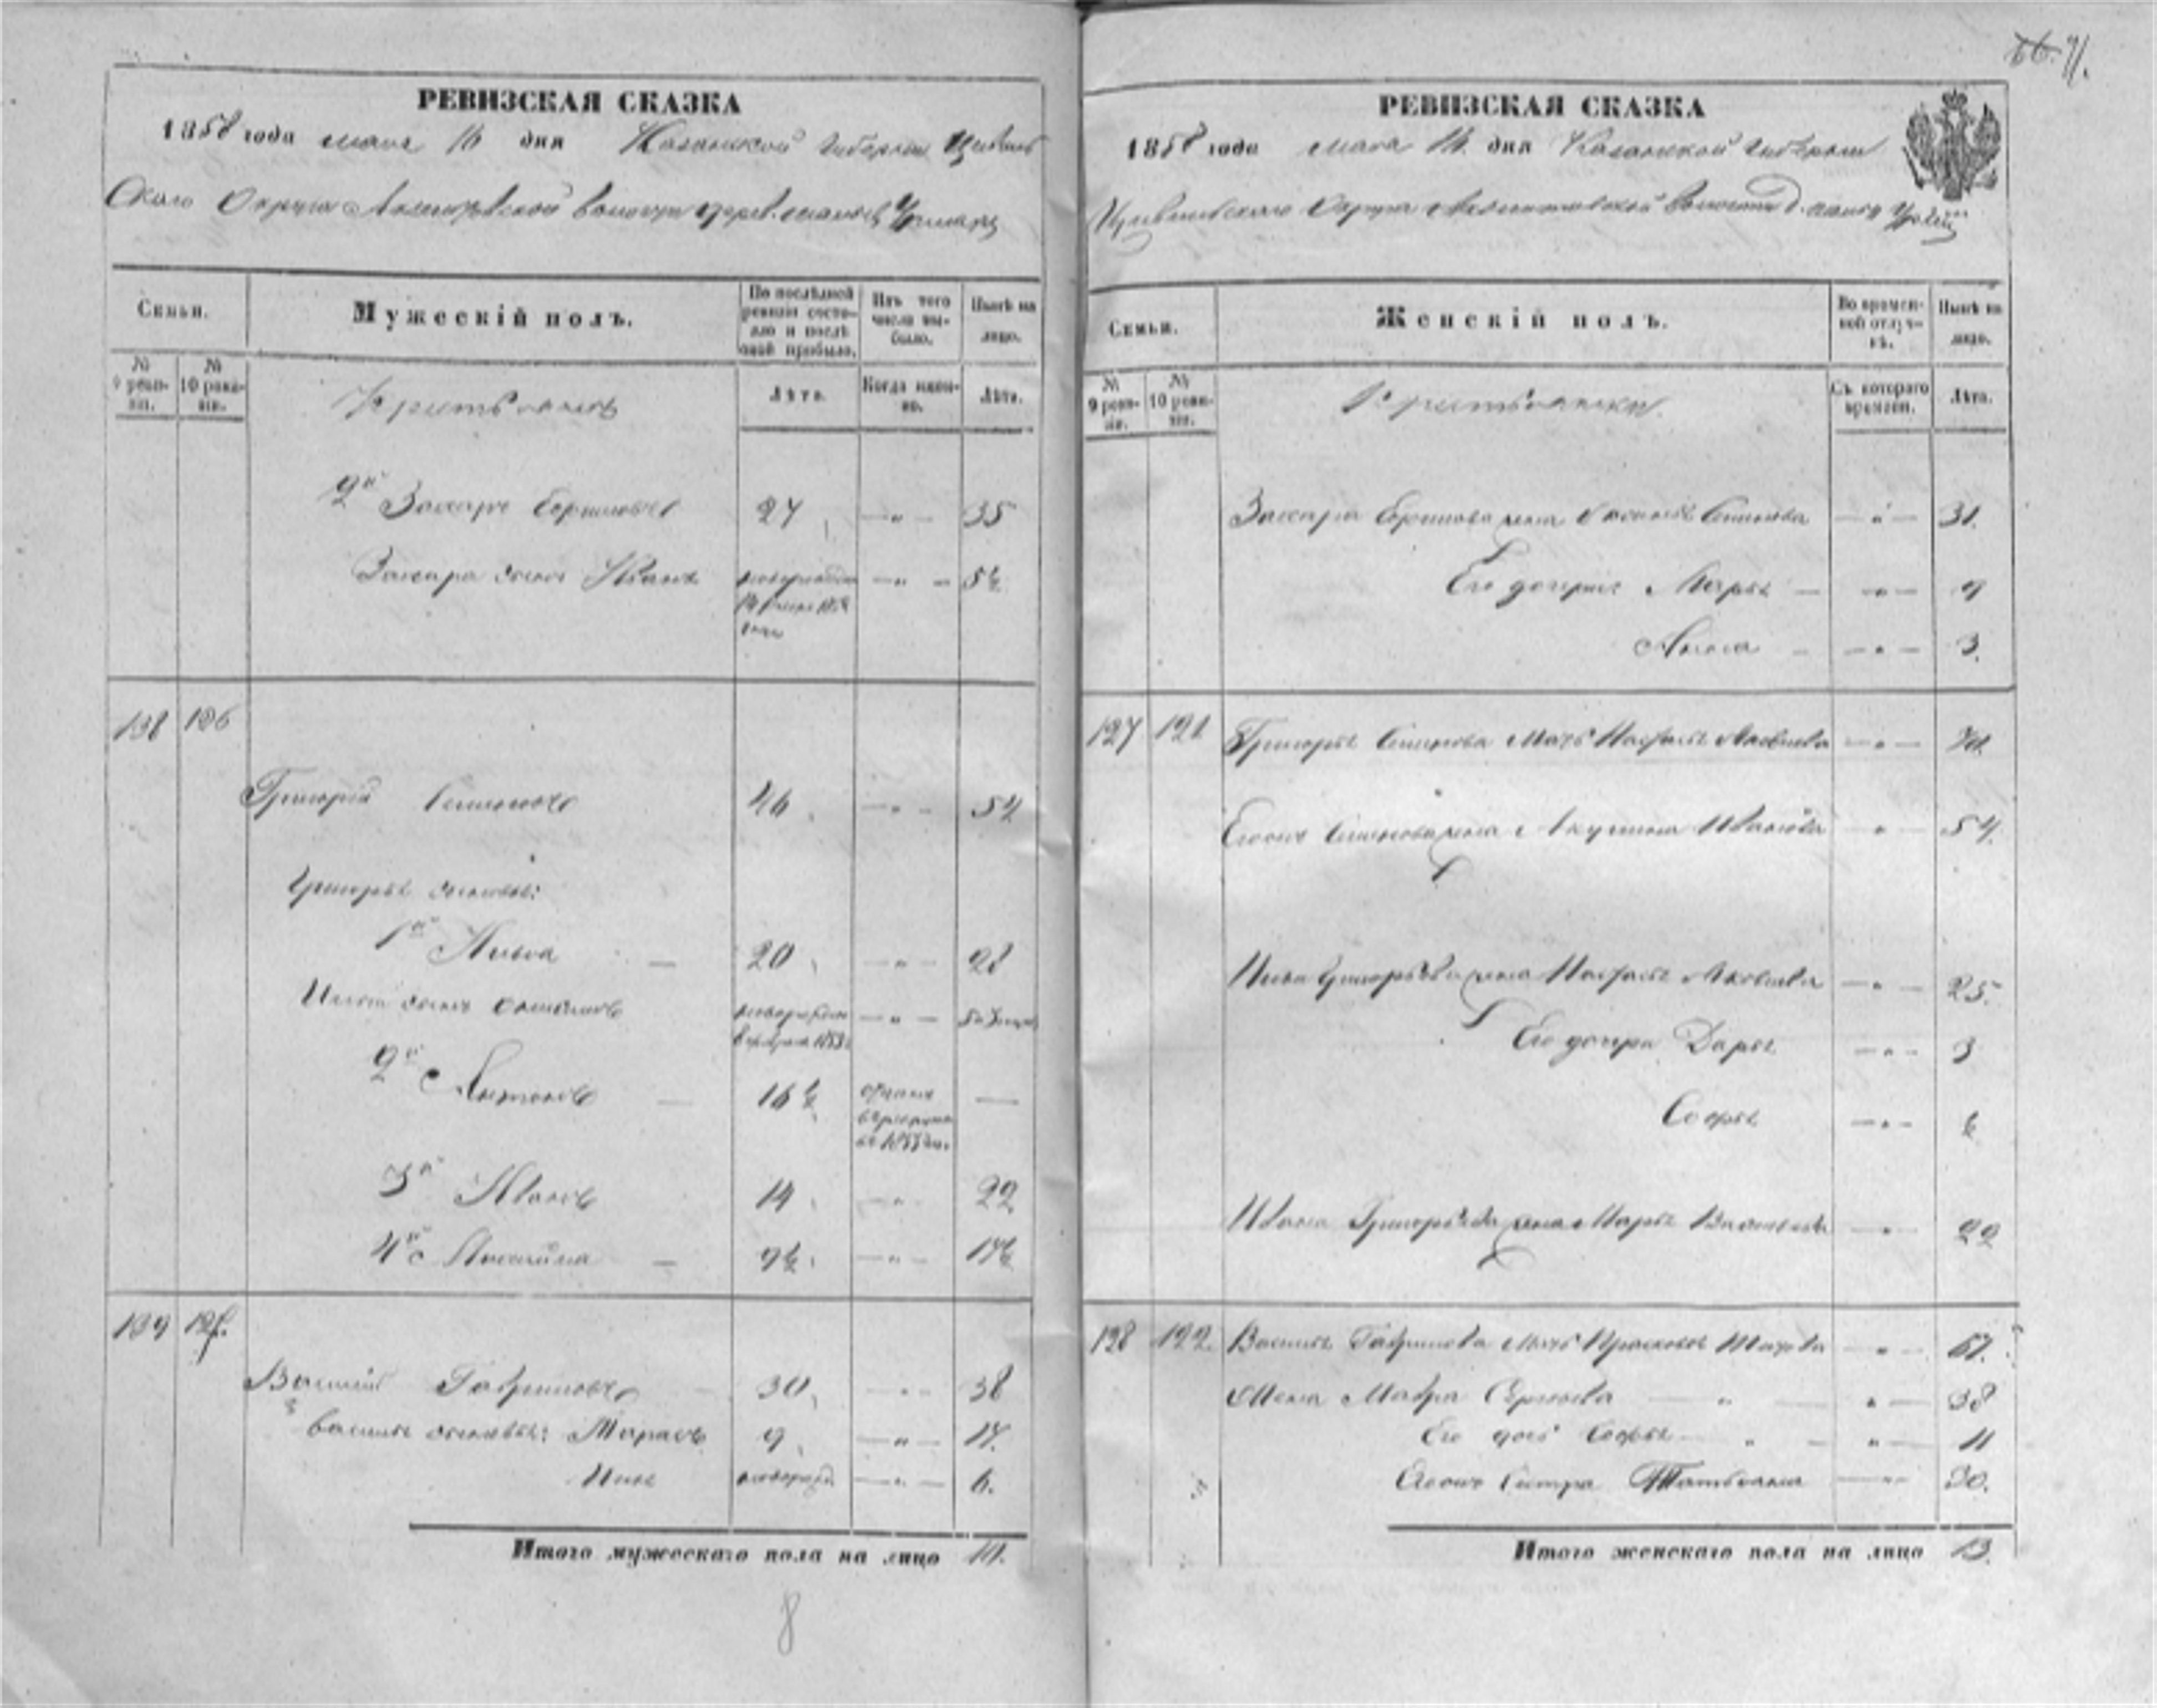 РЕВИЗСКАЯ СКАЗКА
1858 года марта 16 дня Казанской Губернии Цивиль
скаго Округа волости
Семьи.
Мужескій полъ.
По послѣдней ревизіи состояло и послѣ оной прибыло.
Изъ того числа выбыло.
Нынѣ на лицо.
№ 9 ревизіи.
№ 10 ревизіи.
Крестьяне
Лѣта.
Когда именно.
Лѣта.
2й Захаръ Ефимовъ 27 — " — 35
Захара сынъ Иванъ — " — 5½
138 126
Григорій Семеновъ 46 — " — 54
Григорья сыновья:
1й Илья — 20 — " — 28
Ильи сынъ — " —
2й Антонъ — 16½ —
3й Иванъ 14 " 22
4й — 9½ — " — 17½
139 127.
Василій Гавриловъ 30 — " — 38
Василья сыновья: Тарасъ 9 — " — 17.
новорожд. — " — 6.
Итого мужескаго пола на лицо 11.
8
66. 71.
РЕВИЗСКАЯ СКАЗКА
1858 года марта 16 дня Казанской Губерніи
Цивильскаго Округа волости
Семьи.
Женскій полъ.
Во временной отлучкѣ.
Нынѣ на лицо.
№ 9 ревизіи.
№ 10 ревизіи.
Крестьянки.
Съ котораго времени.
Лѣта.
Захара Ефимова жена — " — 31.
Его дочери: Марья — — " — 9
Анна — — " — 3.
127 121 Григорья Семенова мать Настасья Яковлева — " —
Егожъ Семенова жена Акулина Иванова " — 54.
Ильи Григорьева жена Настасья Яковлева — " — 25.
Его дочери Дарья — " — 3
Софья — " —
Ивана Григорьева жена Марья Васильева — " — 22
128 122. Василья Гаврилова мать Прасковья — " — 67.
Жена Мавра Сергѣева — " — " — 38
Его дочь Софья " — " — 11
Егожъ сестра Татьяна — " — 30.
Итого женскаго пола на лицо 13.